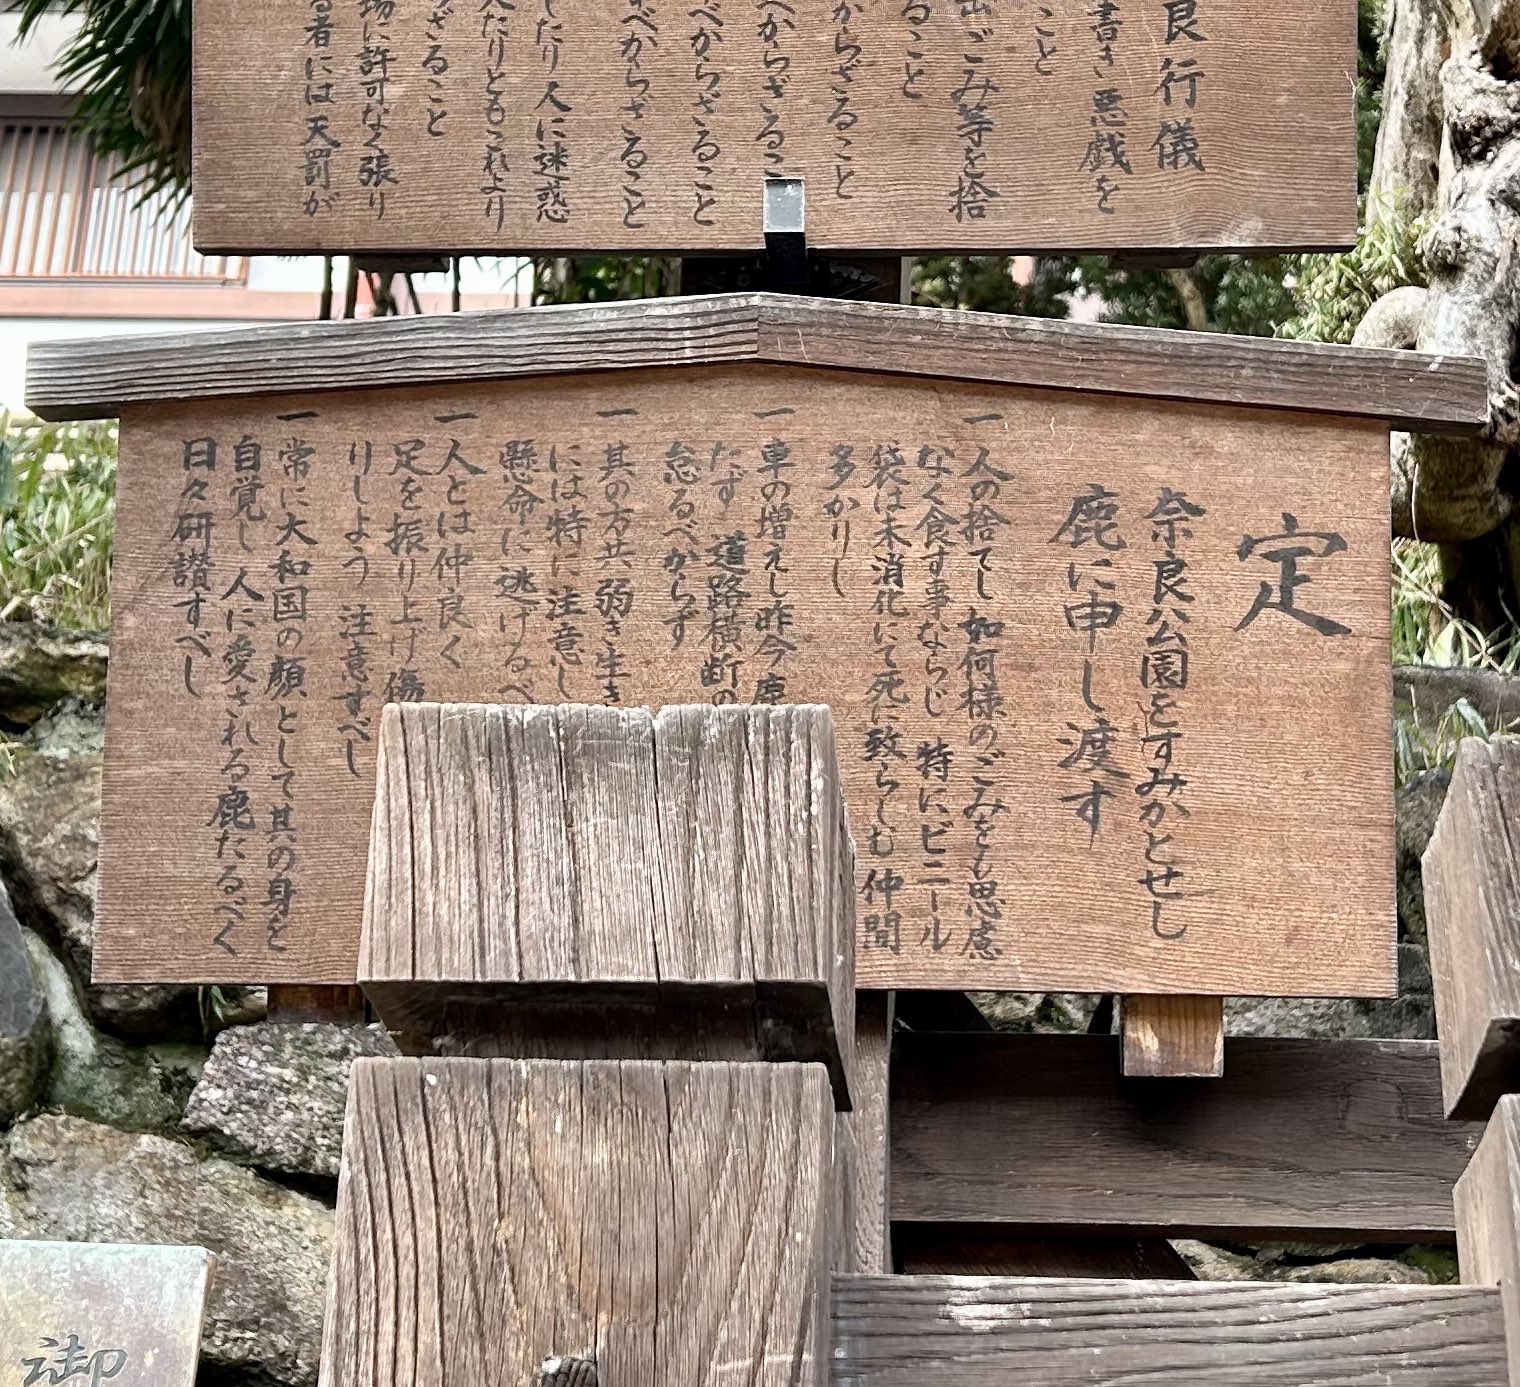 良行儀
書き悪戯を
こと
ごみ等を捨
ること
からざること
べからざるこ
べからざること
べからざること
したり 人に迷惑
たりともこれより
ざること
場に許可なく張り
る者には天罰が
定
奈良公園をすみかとせし
鹿に申し渡す
一 人の捨てし 如何様のごみをも思慮
なく食す事ならじ 特にビニール
袋は未消化にて死に致らしむ仲間
多かりし
一 車の増えし昨今鹿
たず 道路横断の
怠るべからず
一 其の方共 弱き生き
には特に注意し
懸命に逃げるべ
一 人とは仲良く
足を振り上げ 傷
りしよう 注意すべし
一 常に大和国の顔として其の身を
自覚し 人に愛される鹿たるべく
日々研讃すべし
御